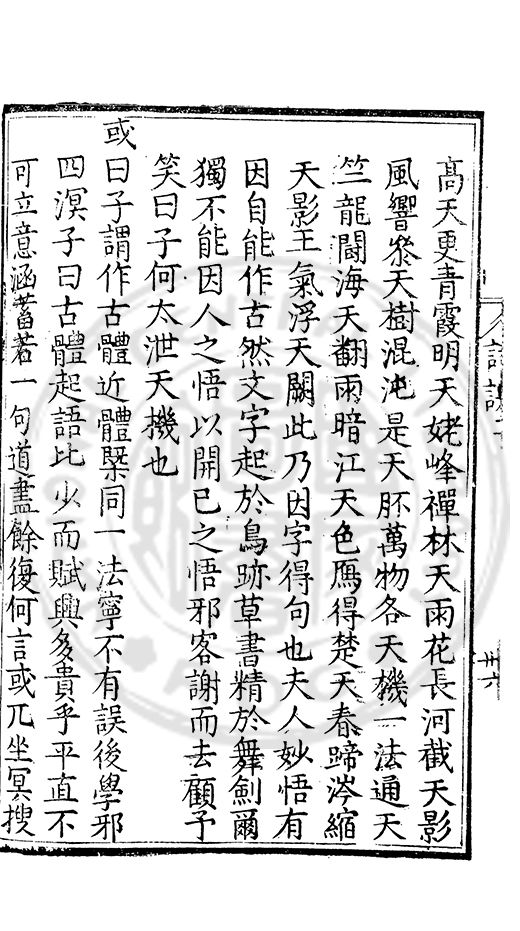 髙天更青霞明天姥峰禪林天雨花長河截天影
風響叅天樹混沌是天胚萬物各天機一法通天
竺龍鬭海天翻雨暗江天色鴈得楚天春蹄涔縮
天影王氣浮天闕此乃因字得句也夫人妙悟有
因自能作古然文字起於鳥跡草書精於舞劎爾
獨不能因人之悟以開已之悟邪客謝而去顧予
笑曰子何太泄天機也
或曰子謂作古體近體槩同一法寧不有誤後學邪
四溟子曰古體起語比少而賦興多貴乎平直不
可立意涵蓄若一句道盡餘復何言或兀坐冥搜
卅六